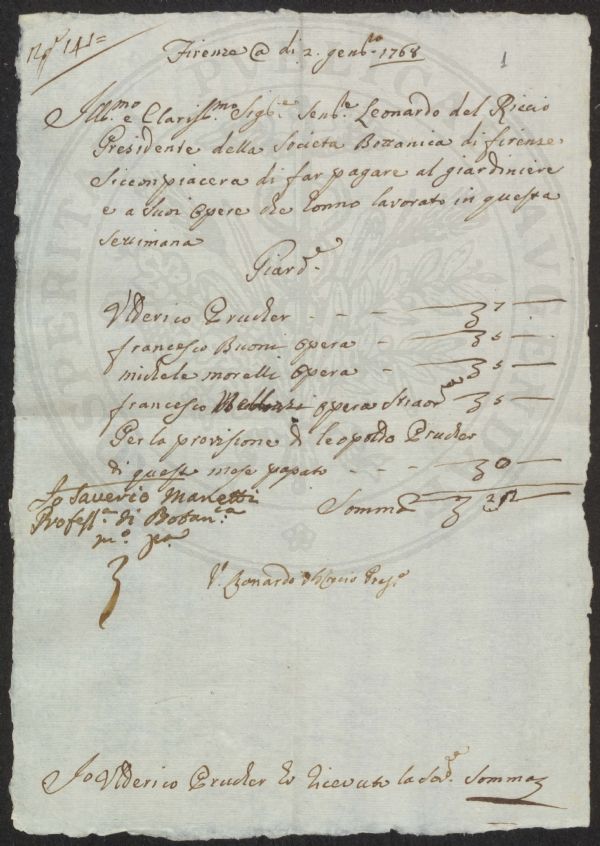 141=
1
Firenze @ di 2. genb.ro 1768
Ill.mo e Clariss.mo Sig.re Sen.re Leonardo del Riccio
Presidente della Societa Bottanica di firenze
Si compiacera di far pagare al giardiniere
e a Suoi opere che honno lavorato in questa
settimana
Giard.e
Ulderico Prucher - - - 7 -
francesco Buoni opera - - 5 -
michele morelli opera - 5 -
francesco opera 5 -
Per la provisione di leopoldo Prucher
di questo mese papato - - - 0 -
Io Saverio Manetti
Somma
Profess.e di Botan.ca
m.o p.a
V. Leonardo del Riccio Pres.e
Io Ulderico Prucher ho ricevuto la Sud.a Somma